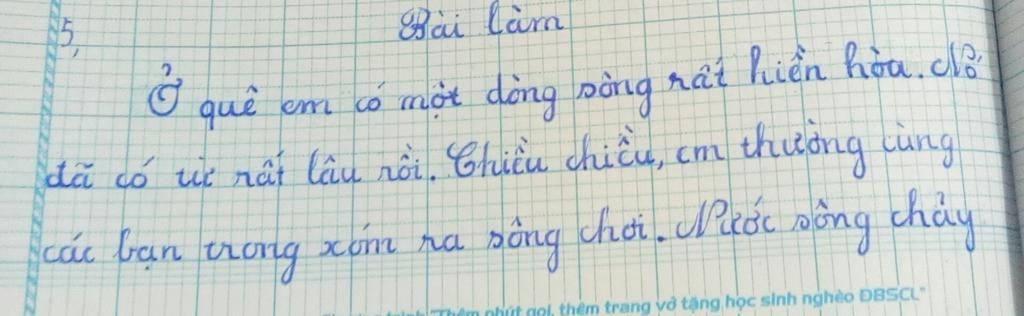 5,
Bài làm
Ở quê em có một dòng sông rất hiền hòa. Nó
đã có từ rất lâu rồi. Chiều chiều, em thường cùng
các bạn trong xóm ra sông chơi. Nước sông chảy
"Thêm phút gọi, thêm trang vở tặng học sinh nghèo ĐBSCL"